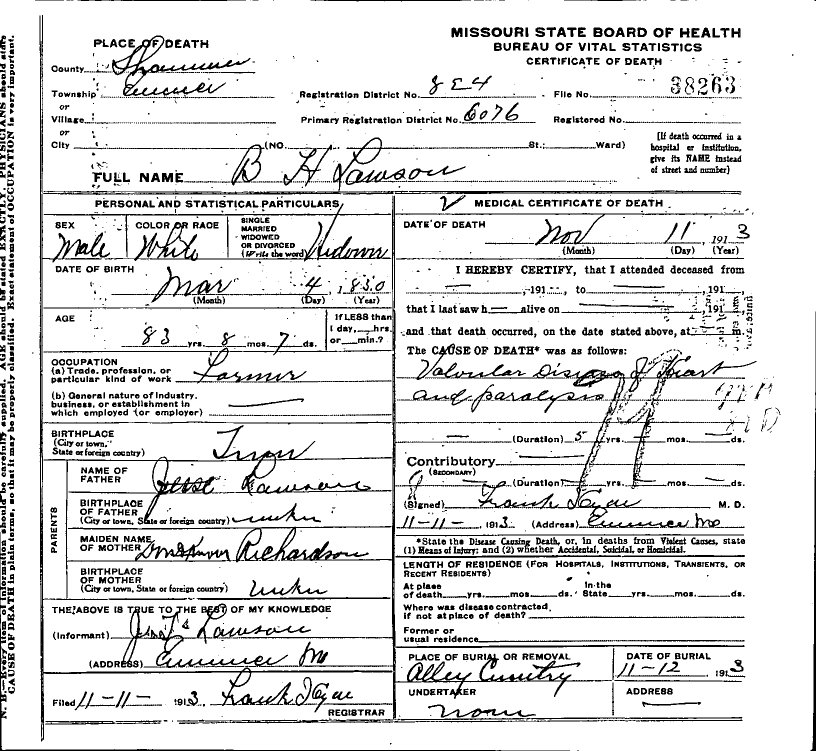 N. B.—Every item of information should be carefully supplied. AGE should be stated EXACTLY. PHYSICIANS should state
CAUSE OF DEATH in plain terms, so that it may be properly classified. Exact statement of OCCUPATION is very important.
MISSOURI STATE BOARD OF HEALTH
BUREAU OF VITAL STATISTICS
CERTIFICATE OF DEATH
PLACE OF DEATH
County
Township
or
Village
or
City (NO. St.; Ward)
Registration District No. 824 File No. 38263
Primary Registration District No. 6076 Registered No.
[If death occurred in a
hospital or institution,
give its NAME instead
of street and number]
FULL NAME B H Lawson
PERSONAL AND STATISTICAL PARTICULARS
SEX
Male
COLOR OR RACE
White
SINGLE
MARRIED
WIDOWED
OR DIVORCED
(Write the word)
Widower
DATE OF BIRTH
Mar 4, 1830
(Month) (Day) (Year)
AGE
83 yrs. 8 mos. 7 ds.
If LESS than
1 day, hrs.
or min.?
OCCUPATION
(a) Trade, profession, or
particular kind of work Farmer
(b) General nature of industry,
business, or establishment in
which employed (or employer)
BIRTHPLACE
(City or town,
State or foreign country)
PARENTS
NAME OF
FATHER Jesse Lawson
BIRTHPLACE
OF FATHER
(City or town, State or foreign country)
MAIDEN NAME
OF MOTHER Richardson
BIRTHPLACE
OF MOTHER
(City or town, State or foreign country)
THE ABOVE IS TRUE TO THE BEST OF MY KNOWLEDGE
(Informant) Lawson
(ADDRESS) Mo
Filed 11-11- 1913 Frank
REGISTRAR
MEDICAL CERTIFICATE OF DEATH
DATE OF DEATH
Nov 11 1913
(Month) (Day) (Year)
I HEREBY CERTIFY, that I attended deceased from
, 191 , to , 191
that I last saw h alive on , 191
and that death occurred, on the date stated above, at
The CAUSE OF DEATH* was as follows:
Valvular Disease of Heart
and paralysis
(Duration) 5 yrs. mos. ds.
Contributory
(SECONDARY)
(Duration) yrs. mos. ds.
(Signed) Frank M. D.
11-11-, 1913 (Address) Mo
*State the Disease Causing Death, or, in deaths from Violent Causes, state
(1) Means of Injury; and (2) whether Accidental, Suicidal, or Homicidal.
LENGTH OF RESIDENCE (FOR HOSPITALS, INSTITUTIONS, TRANSIENTS, OR
RECENT RESIDENTS)
At place In the
of death yrs. mos. ds. State yrs. mos. ds.
Where was disease contracted
if not at place of death?
Former or
usual residence
PLACE OF BURIAL OR REMOVAL
Alley
DATE OF BURIAL
11-12 1913
UNDERTAKER
None
ADDRESS